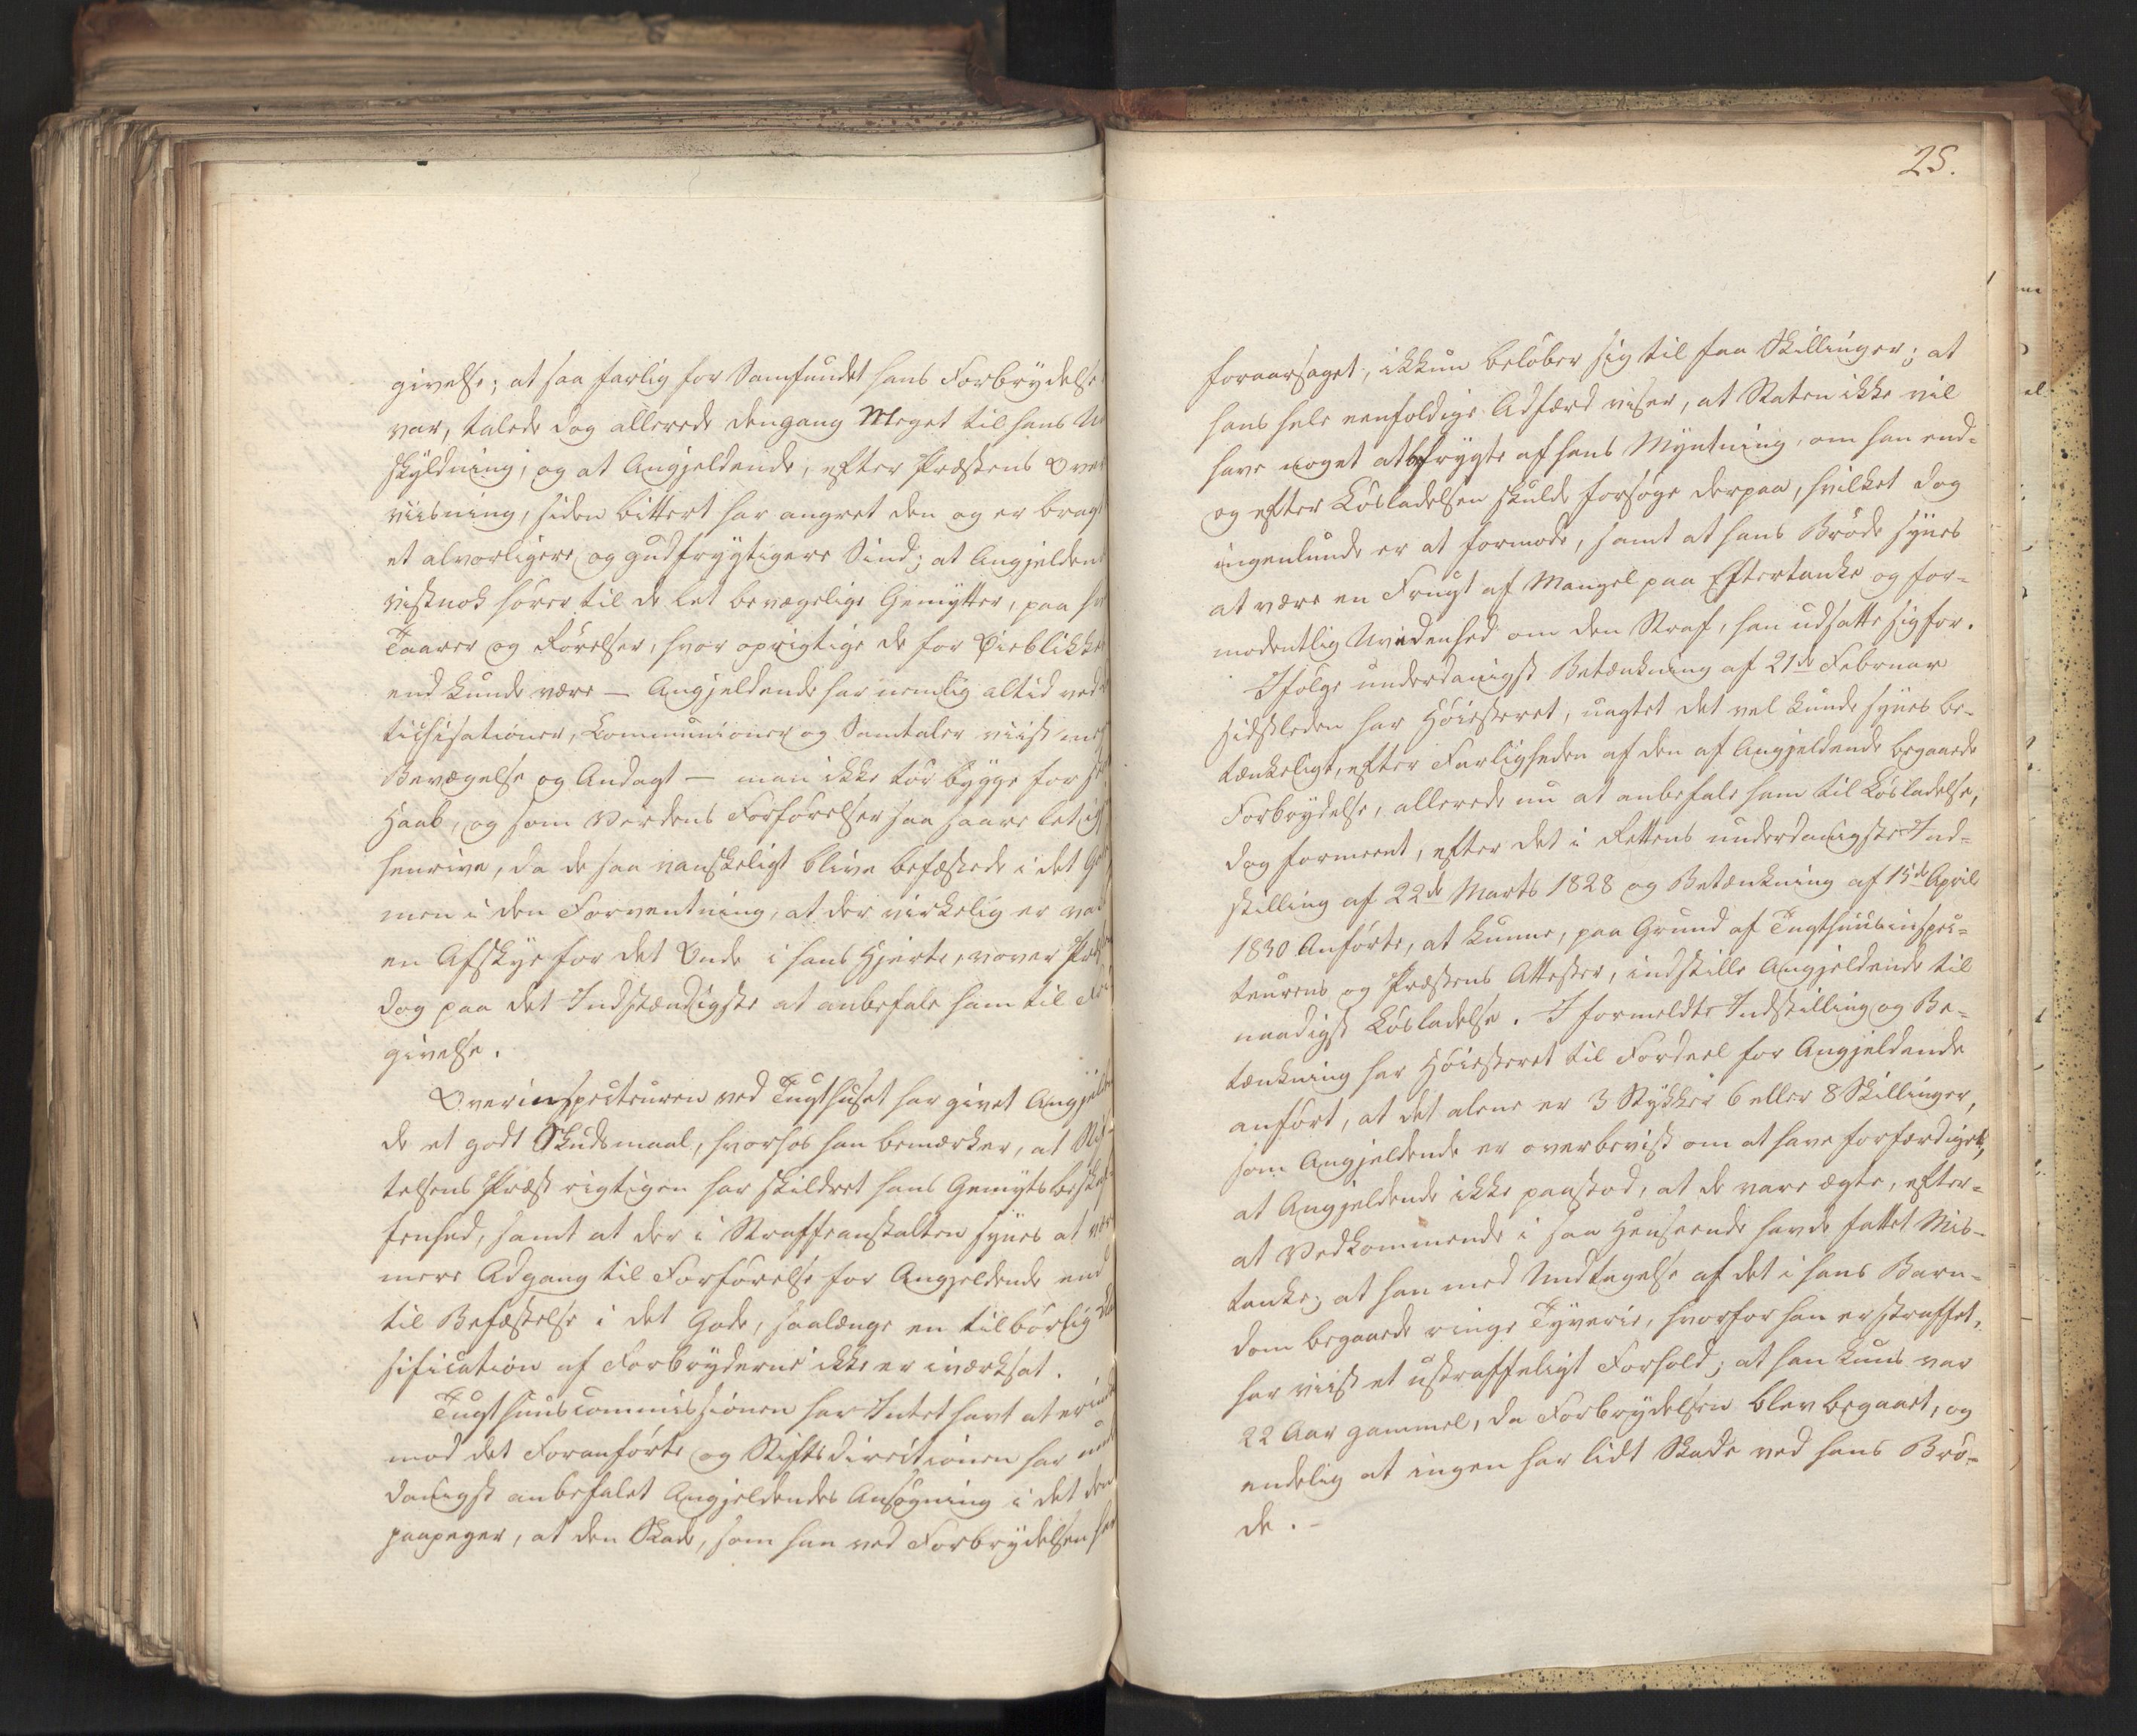 givelse; at saa farlig for Samfundet hans Forbrydelse
var, talede dog allerede dengang Meget til hans U
skyldning; og at Angjeldende, efter Præstens Over
viisning, siden bittert har angret den og er bragt
et alvorligere og gudfrygtigere Sind; at Angjelden
vistnok hører til de let bevægelige Gemytter, paa hv
Taarer og Rørelser, hvor oprigtige de for Øieblikke
end kunde være — Angjeldende har nemlig altid ved
tichisationer, Communioner og Samtaler viist meg
Bevægelse og Andagt — man ikke tør bygge for
Haab, og som Verdens Forførelser saa saare let ig
henrive, da de saa vanskeligt blive befæstede i det G
men i den Forventning, at der virkelig er va
en Afskye for det Onde i hans Hjerte, vover Præst
dog paa det Indstændigste at anbefale ham til
givelse.
Overinspecteuren ved Tugthuset har givet Angjeld
de et godt Skudsmaal, hvorhos han bemærker, at Stif
telsens Præst rigtigen har skildret hans Gemytsbeskaf
fenhed, samt at der i Straffeanstalten synes at vær
mere Adgang til Forførelse for Angjeldende end
til Befæstelse i det Gode, saalænge en tilbørlig
sification af Forbryderne ikke er iværksat.
Tugthuuscommissionen har Intet havt at erind
mod det Foranførte og Stiftsdirectionen har und
danigst anbefalet Angjeldendes Ansøgning i det den
paapeger, at den Skade, som han ved Forbrydelsen har
25.
foraarsaget, ikkun beløber sig til faa Skillinger; at
hans hele eenfoldige Adfærd viser, at Staten ikke vil
have noget at befrygte af hans Myntning, om han end-
og efter Løsladelsen skulde forsøge derpaa, hvilket dog
ingenlunde er at formode, samt at hans Brøde synes
at være en Frugt af Mangel paa Eftertanke og for-
modentlig Uvidenhed om den Straf, han udsatte sig for.
Ifølge underdanigst Betænkning af 21de Februar
sidstleden har Høiesteret, uagtet det vel kunde synes be-
tænkeligt, efter Farligheden af den af Angjeldende begaaede
Forbrydelse, allerede nu at anbefale ham til Løsladelse,
dog formeent, efter det i Rettens underdanigste Ind-
stilling af 22de Marts 1828 og Betænkning af 15de April
1830 Anførte, at kunne, paa Grund af Tugthuusinspec-
teurens og Præstens Attester, indstille Angjeldende til
naadigst Løsladelse. I formeldte Indstilling og Be-
tænkning har Høiesteret til Fordeel for Angjeldende
anført, at det alene er 3 Stykker 6 eller 8 Skillinger,
som Angjeldende er overbeviist om at have forfærdiget,
at Angjeldende ikke paastod, at de vare ægte, efter-
at Vedkommende i saa Henseende havde fattet Mis-
tanke; at han med Undtagelse af det i hans Barn-
dom begaaede ringe Tyverie, hvorfor han er straffet,
har viist et ustraffeligt Forhold; at han kuns var
22 Aar gammel, da Forbrydelsen blev begaaet, og
endelig at ingen har lidt Skade ved hans Brø-
de. -